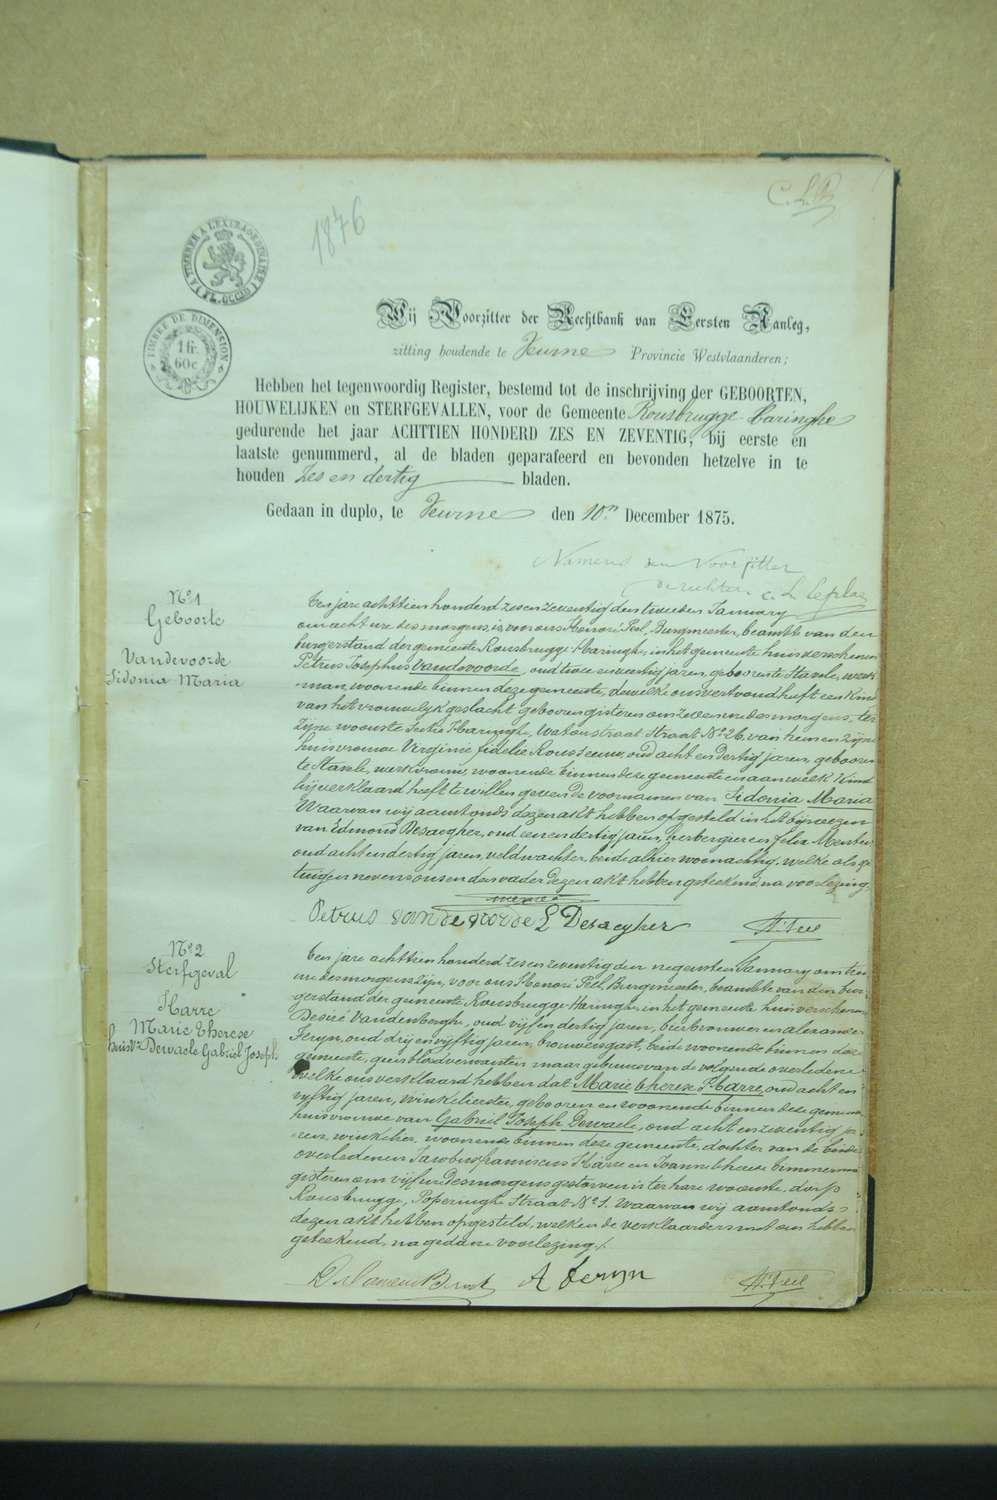 C. L. P.
1876
TIMBRER A L'EXTRAORDINAIRE
TIMBRE DE DIMENSION
1 fr.
60c
Wij Voorzitter der Rechtbank van Eersten Aanleg,
zitting houdende te Veurne Provincie Westvlaanderen;
Hebben het tegenwoordig Register, bestemd tot de inschrijving der GEBOORTEN,
HOUWELIJKEN en STERFGEVALLEN, voor de Gemeente Rousbrugge-Haringhe
gedurende het jaar ACHTTIEN HONDERD ZES EN ZEVENTIG, bij eerste en
laatste genummerd, al de bladen geparafeerd en bevonden hetzelve in te
houden Zes en dertig bladen.
Gedaan in duplo, te Veurne den 10n December 1875.
Namens den Voorzitter
de rechter
No 1
Geboorte
Vandevoorde
Sidonia Maria
Ten jare achttien honderd zes en zeventig den tweeden January
om acht ure des morgens, is voor ons Honoré Feel, Burgmeester, beambte van den
burgerstand der gemeente Rousbrugge-Haringhe, in het gemeente huis verschenen
Petrus Josephus Vandevoorde, oud twee en veertig jaren, geboren te Stavele, werk
man, woonende binnen deze gemeente, dewelke ons vertoond heeft een kind
van het vrouwelijk geslacht geboren gisteren om zeven ure des morgens, ter
zijne woonste Sectie Haringhe, Watoustraat Straat No 26, van hem en zijne
huisvrouw Virginie fidelie Rousseeuw, oud acht en dertig jaren, geboren
te Stavele, werkvrouw, woonende binnen deze gemeente en aan welk kind
hij verklaard heeft te willen geven de voornamen van Sidonia Maria
Waarvan wij aanstonds dezen akt hebben opgesteld in het bijwezen
van Edmond Desaegher, oud een en dertig jaren, herbergier en felix Menten
oud acht en dertig jaren, veldwachter, beide alhier woonachtig, welke als ge
tuigen nevens ons en den vader dezen akt hebben geteekend, na voorlezing.
Petrus vandevoorde E Desaegher H. Feel
No 2
Sterfgeval
Harre
Marie Therese
huisv. Dewaele Gabriel Joseph.
Ten jare achttien honderd zes en zeventig den negensten January om tien
ure des morgens zijn, voor ons Honoré Feel, Burgmeester, beambte van den bur
gerstand der gemeente Rousbrugge Haringhe, in het gemeente huis verschenen
Desiré Vandenberghe, oud vijf en dertig jaren, bierbrouwer en alexander
Feryn, oud drij en vijftig jaren, brouwersgast, beide woonende binnen deze
gemeente, geen bloedverwanten maar gebueren van de volgende overledene
welke ons verklaard hebben dat Marie therese Harre, oud acht en
vijftig jaren, winkelierster, geboren en woonende binnen deze gemeente
huisvrouwe van Gabriel Joseph Dewaele, oud acht en zeventig ja
ren, winkelier, woonende binnen deze gemeente, dochter van de beide
overledenen Jacobus franciscus Harre en Joanna theresia
gisteren om vijf ure des morgens gestorven is ter hare woonste, dorp
Rousbrugge, Poperinghe Straat No 1. Waarvan wij aanstonds
dezen akt hebben opgesteld, welken de verklaarders met ons hebben
geteekend, na gedane voorlezing.
A Feryn H. Feel